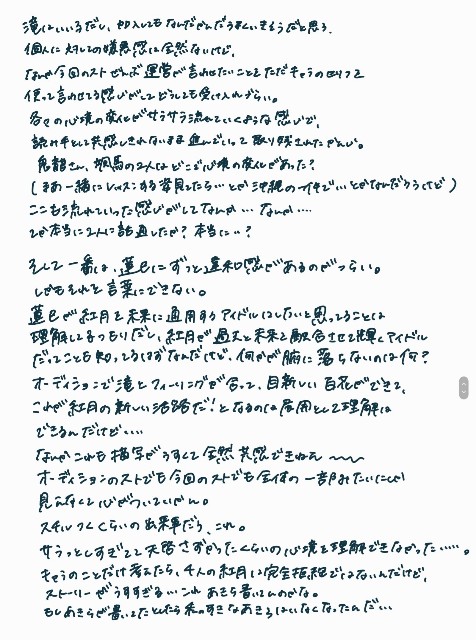 滝はいい子だし、加入してもなんだかんだうまくいきそうだと思う、
個人に対しての嫌悪感は全然ないけど、
なんか今回のストぜんぶ運営が言わせたいことをただキャラのセリフを
使って言わせてる感じがしてどうしても受け入れづらい。
各々の心境の変化がサラサラ流れていくような感じで、
読み手として共感しきれないまま進んでいって取り残されたかんじ。
鬼龍さん、颯馬の2人はどこで心境の変化があった?
(まあ一緒にレッスンする姿見てたら…とか沖縄のライブで…とかなんだろうけど)
ここも流れていった感じがしてなんか…なんか….
てか本当に2人に話通したか?本当に…?
そして一番は、蓮巳にずっと違和感があるのがつらい。
しかもそれを言葉にできない。
蓮巳が紅月を未来に通用するアイドルにしたいと思ってることは
理解してるつもりだし、紅月が過去と未来を融合させて輝くアイドル
だってことも知ってるはずなんだけど、何かが腑に落ちないのは何?
オーディションで滝とフィーリングが合って、目新しい百花ができて、
これが紅月の新しい活路だ!となるのは展開として理解は
できるんだけど….
なんかこれも描写がうすくて全然共感できねえ〜〜
オーディションのストでも今回のストでも全体の一部みたいにしか
見えなくて心がついていかん。
スチルつくくらいの出来事だろ、これ。
サラッとしすぎてて天啓さずかったくらいの心境を理解できなかった…..。
キャラのことだけ考えたら、4人の紅月は完全拒絶ではないんだけど、
ストーリーがうすすぎる…これあきら書いてんのかな。
もしあきらが書いてたとしたら私のすきなあきらはいなくなったんだ…